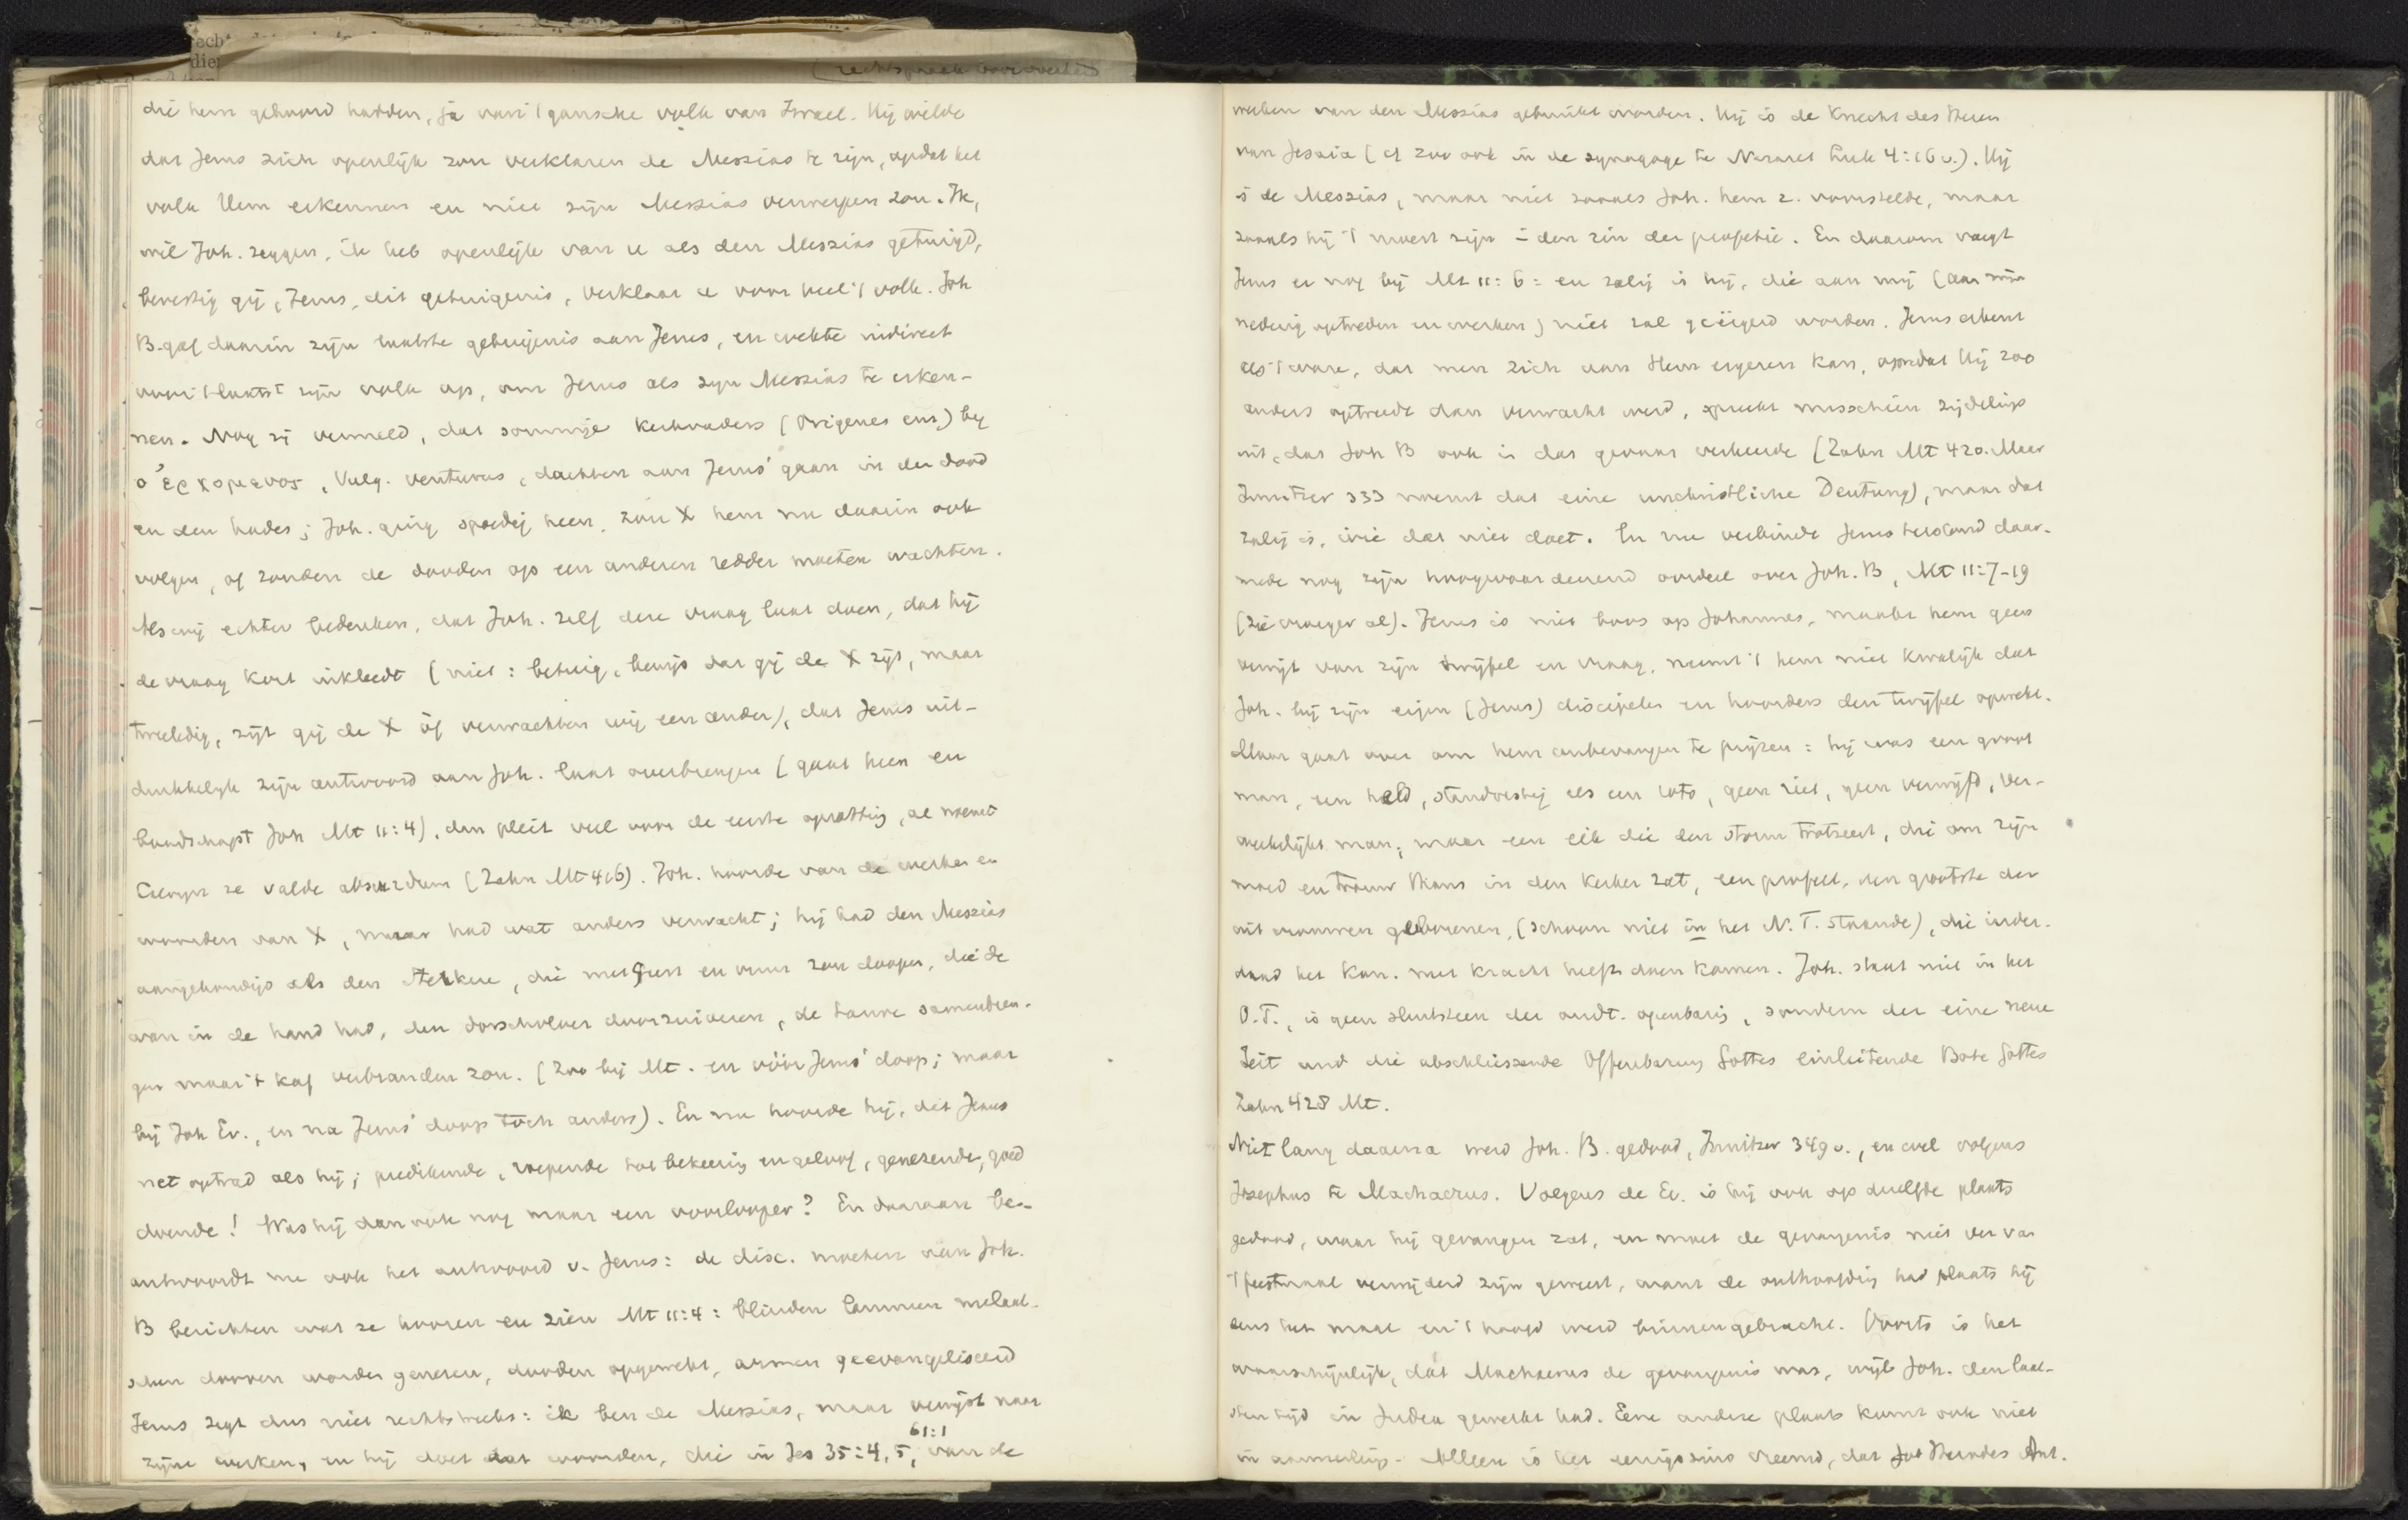 die hem gehoord hadden, ja van 't gansche volk van Israel. Hij wilde
dat Jezus zich openlijk zou verklaren de Messias te zijn, opdat het
volk Hem erkennen en niet zijn Messias verwerpen zou. Ik,
wil Joh. zeggen, ik heb openlijk van u als den Messias getuigd,
bevestig gij, Jezus, dit getuigenis, verklaar u voor heel 't volk. Joh
B. gaf daarin zijn laatste getuigenis aan Jezus, en wekte indirect
voor 't laatst zijn volk op, om Jezus als zijn Messias te erken-
nen. Nog zij vermeld, dat sommige kerkvaders (Origenes enz) bij
ὁ ἐρχομενος, Vulg. venturus, dachten aan Jezus' gaan in den dood
en den hades; Joh. ging spoedig heen, zou X hem nu daarin ook
volgen, of zouden de dooden op een anderen redder moeten wachten.
Als wij echter bedenken, dat Joh. zelf deze vraag laat doen, dat hij
de vraag kort inkleedt (niet: betuig, bewijs dat gij de X zijt, maar
tweeledig, zijt gij de X òf verwachten wij een ander), dat Jezus uit-
drukkelijk zijn antwoord aan Joh. laat overbrengen (gaat heen en
boodschapt Joh Mt 11:4), dan pleit veel voor de eerste opvatting, al noemt
ze valde absurdum (Zahn Mt 416). Joh. hoorde van de werken en
woorden van X, maar had wat anders verwacht; hij had den Messias
aangekondigd als den sterkere, die met Geest en vuur zou doopen, die de
wan in de hand had, den dorschvloer doorzuiveren, de tarwe samenbren-
gen maar 't kaf verbranden zou. (Zoo bij Mt. en vóór Jezus' doop; maar
bij Joh Ev., en na Jezus' doop toch anders). En nu hoorde hij, dat Jezus
net optrad als hij; predikende, roepende tot bekeering en geloof, genezende, goed
doende! Was hij dan ook nog maar een voorlooper? En daaraan be-
antwoordt nu ook het antwoord v. Jezus: de disc. moeten aan Joh.
B berichten wat ze hooren en zien Mt 11:4: blinden lammen melaat-
schen dooven worden genezen, dooden opgewekt, armen geevangeliseerd
Jezus zegt dus niet rechtstreeks: ik ben de Messias, maar verwijst naar
61:1
zijne werken, en hij doet dat woorden, die in Jes 35:4,5, van de
werken van den Messias gebruikt worden. Hij is de Knecht des Heeren
van Jesaia (cf zoo ook in de synagoge te Nazaret Luk 4:16 v.). Hij
is de Messias, maar niet zooals Joh. hem z. voorstelde, maar
zooals hij 't moest zijn in den zin der profetie. En daarom voegt
Jezus er nog bij Mt 11:6: en zalig is hij, die aan mij (aan mijn
nederig optreden en werken) niet zal geërgerd worden. Jezus erkent
als 't ware, dat men zich aan Hem ergeren kan, omdat Hij zoo
anders optreedt dan verwacht werd, spreekt misschien zijdelings
uit, dat Joh B ook in dat gevaar verkeerde (Zahn Mt 420. Maar
Innitzer 333 noemt dat eine unchristliche Deutung), maar dat
zalig is, wie dat niet doet. En nu verbindt Jezus terstond daar-
mede nog zijn hoogwaardeerend oordeel over Joh. B, Mt 11:7-19
(zie vroeger al). Jezus is niet boos op Johannes, maakt hem geen
verwijt van zijn twijfel en vraag, neemt 't hem niet kwalijk dat
Joh. bij zijn eigen (Jezus) discipelen en hoorders den twijfel opwekt.
Maar gaat over om hem onbevangen te prijzen: hij was een groot
man, een held, standvastig als een rots, geen riet, geen verwijfd, ver-
wekelijkt man; maar een eik die den storm trotseert, die om zijn
moed en trouw thans in den kerker zat, een profeet, den grootste der
uit vrouwen geborenen, (schoon niet in het N. T. staande), die inder-
daad het Kon. met kracht heeft doen komen. Joh. staat niet in het
O.T., is geen sluitsteen der oudt. openbaring, sondern der eine neue
Zeit und die abschliessende Offenbarung Gottes einleitende Bote Gottes
Zahn 428 Mt.
Niet lang daarna werd Joh. B. gedood, Innitzer 349 v., en wel volgens
Josephus te Machaerus. Volgens de Ev. is hij ook op dezelfde plaats
gedood, waar hij gevangen zat, en moet de gevangenis niet ver van
't feestmaal verwijderd zijn geweest, want de onthoofding had plaats tij-
dens het maal en 't hoofd werd binnengebracht. Voorts is het
waarschijnlijk, dat Machaerus de gevangenis was, wijl Joh. den laat-
sten tijd in Judea gewerkt had. Eene andere plaats komt ook niet
in aanmerking. Alleen is het eenigszins vreemd, dat Herodes Ant.